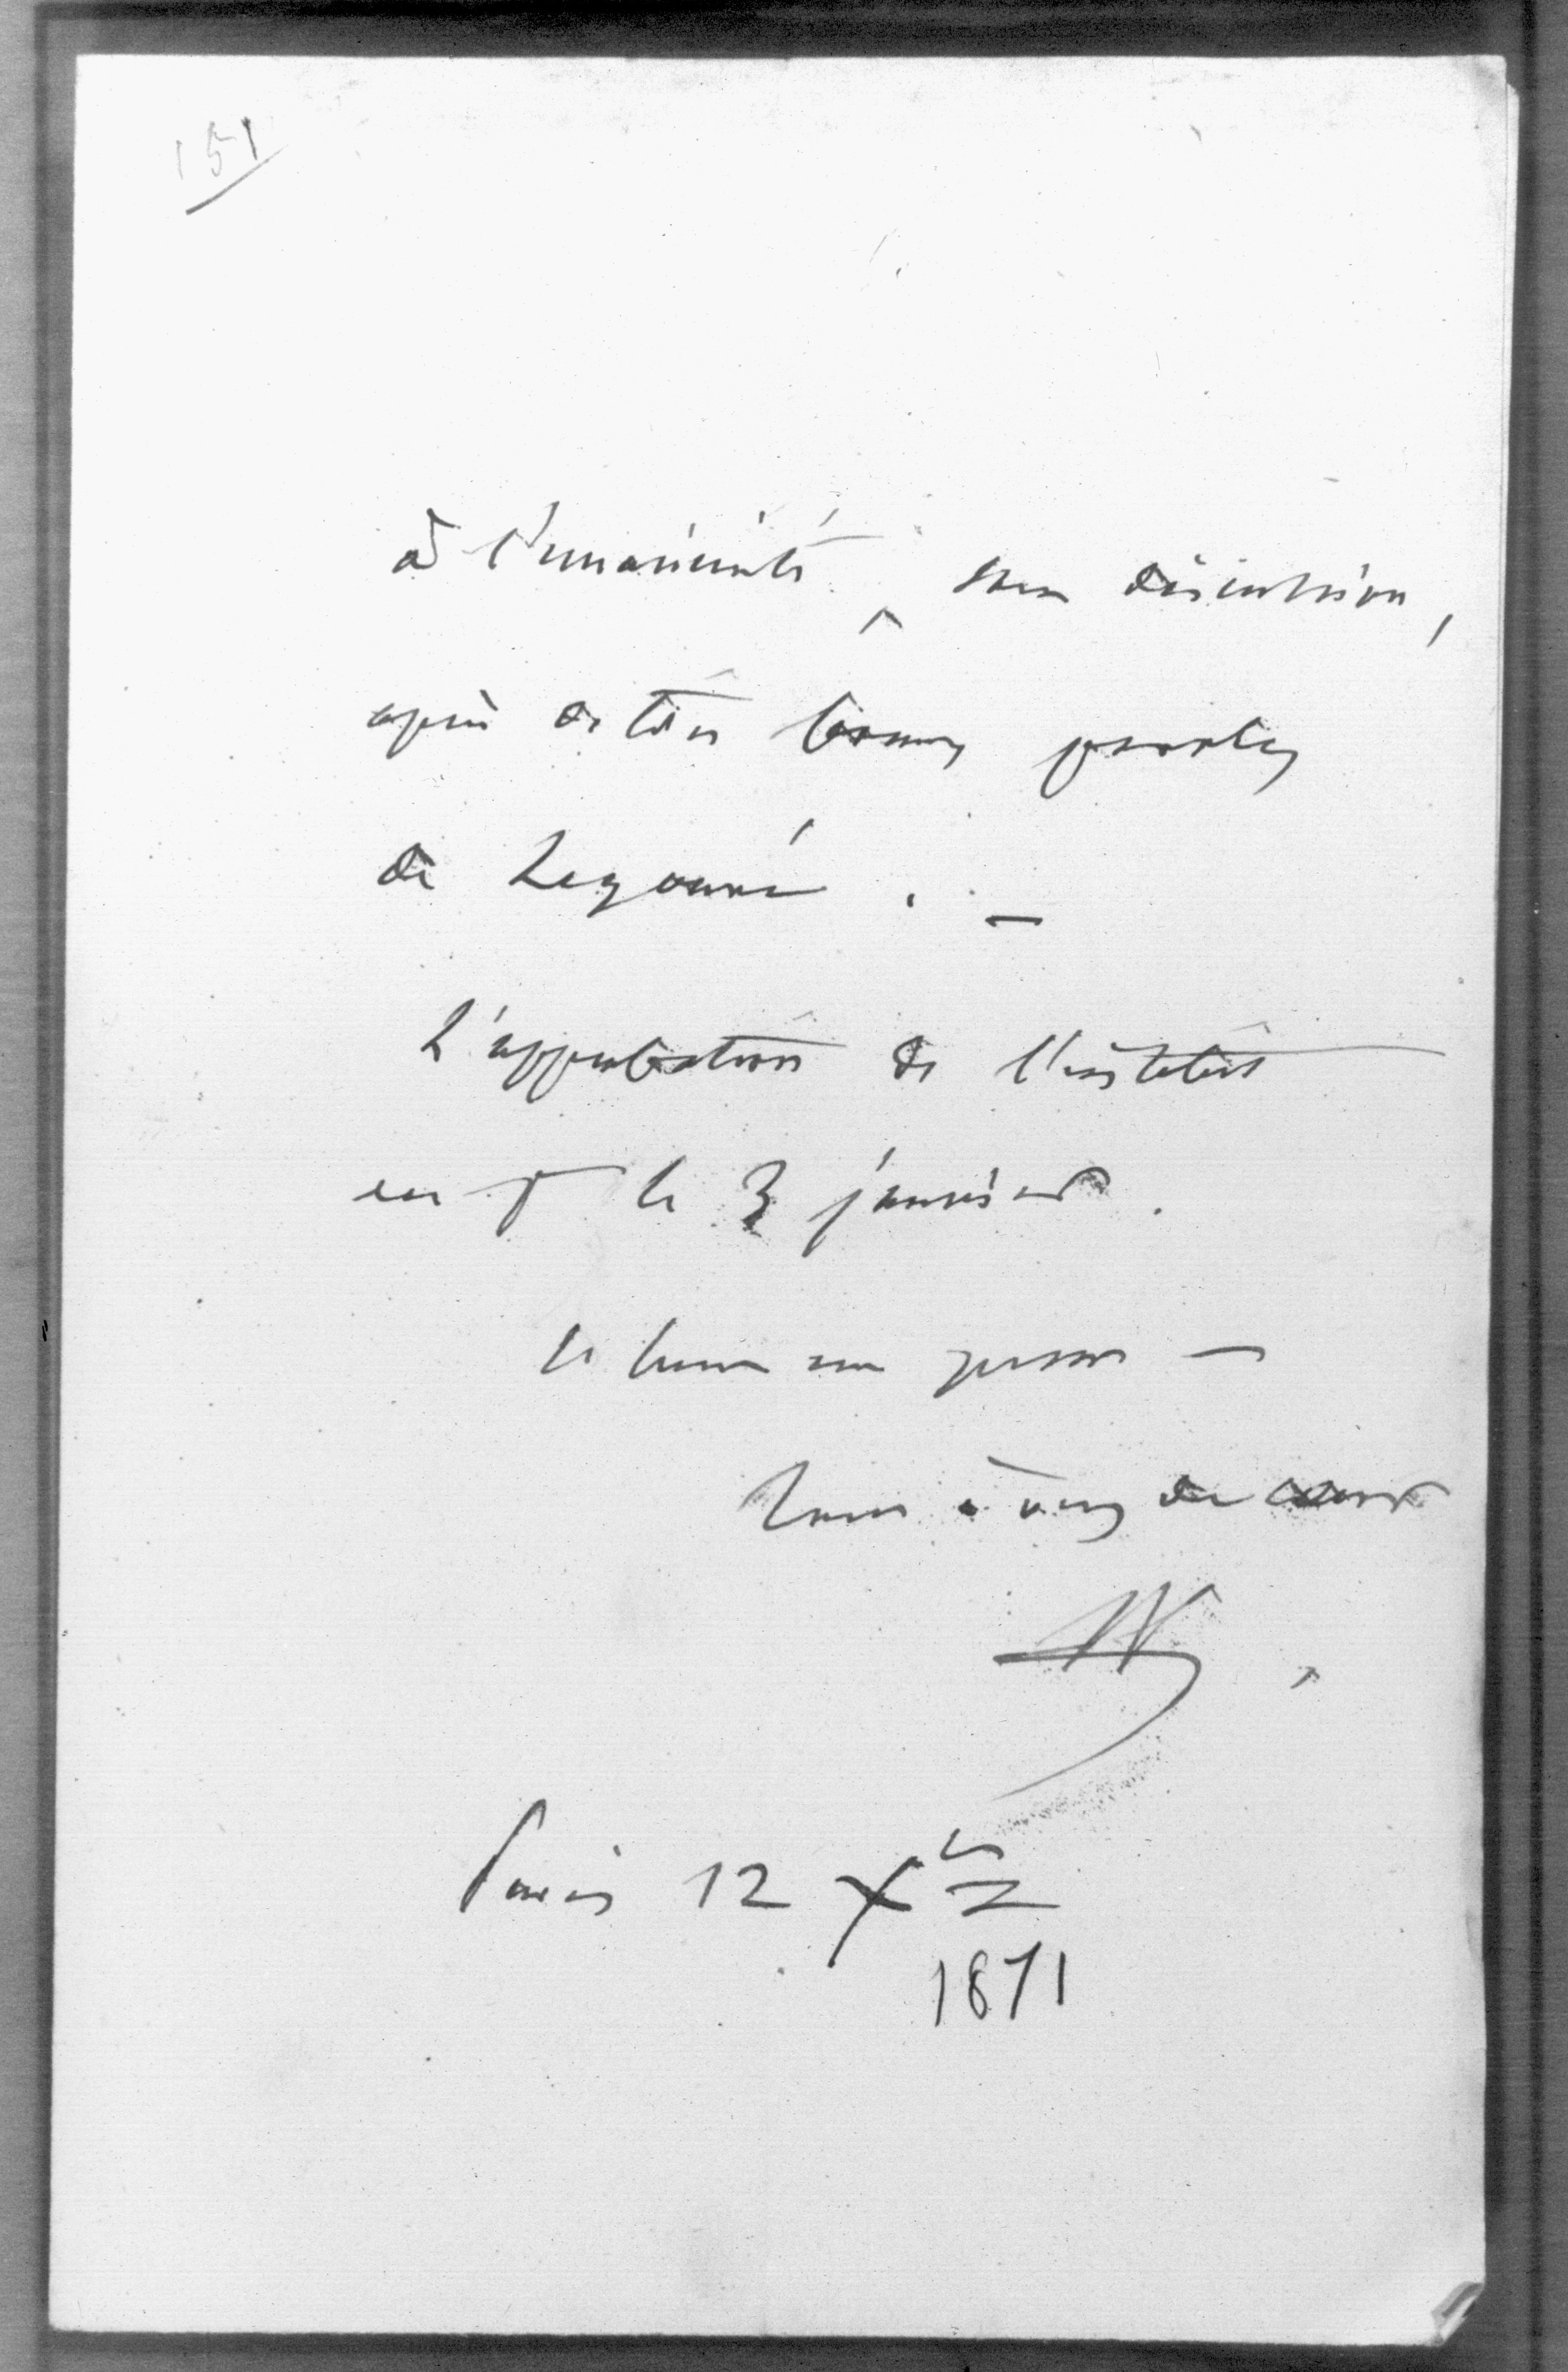 151
à l'unanimité sans discussion,
après de très bonnes paroles
de Legouvé. –
L'approbation de l'institut
est pr le 3 janvier.
Tout à vous de coeur
Paris 12 Xbre
1871